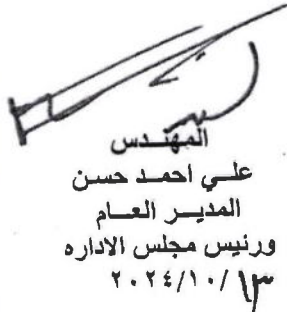 المهندس
علي احمد حسن
المدير العام
ورئيس مجلس الاداره
٢٠٢٤/١٠/١٣